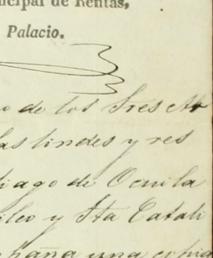 ncipal de Rentas,
Palacio.
o de los Sres
las lindes y res
tiago de Ocuila
leo y Sta Catali
paña una copia